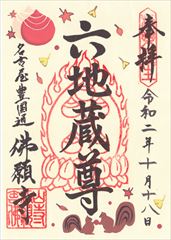 奉拝
令和二年十月十八日
六地蔵尊
名古屋豊国通
佛願寺